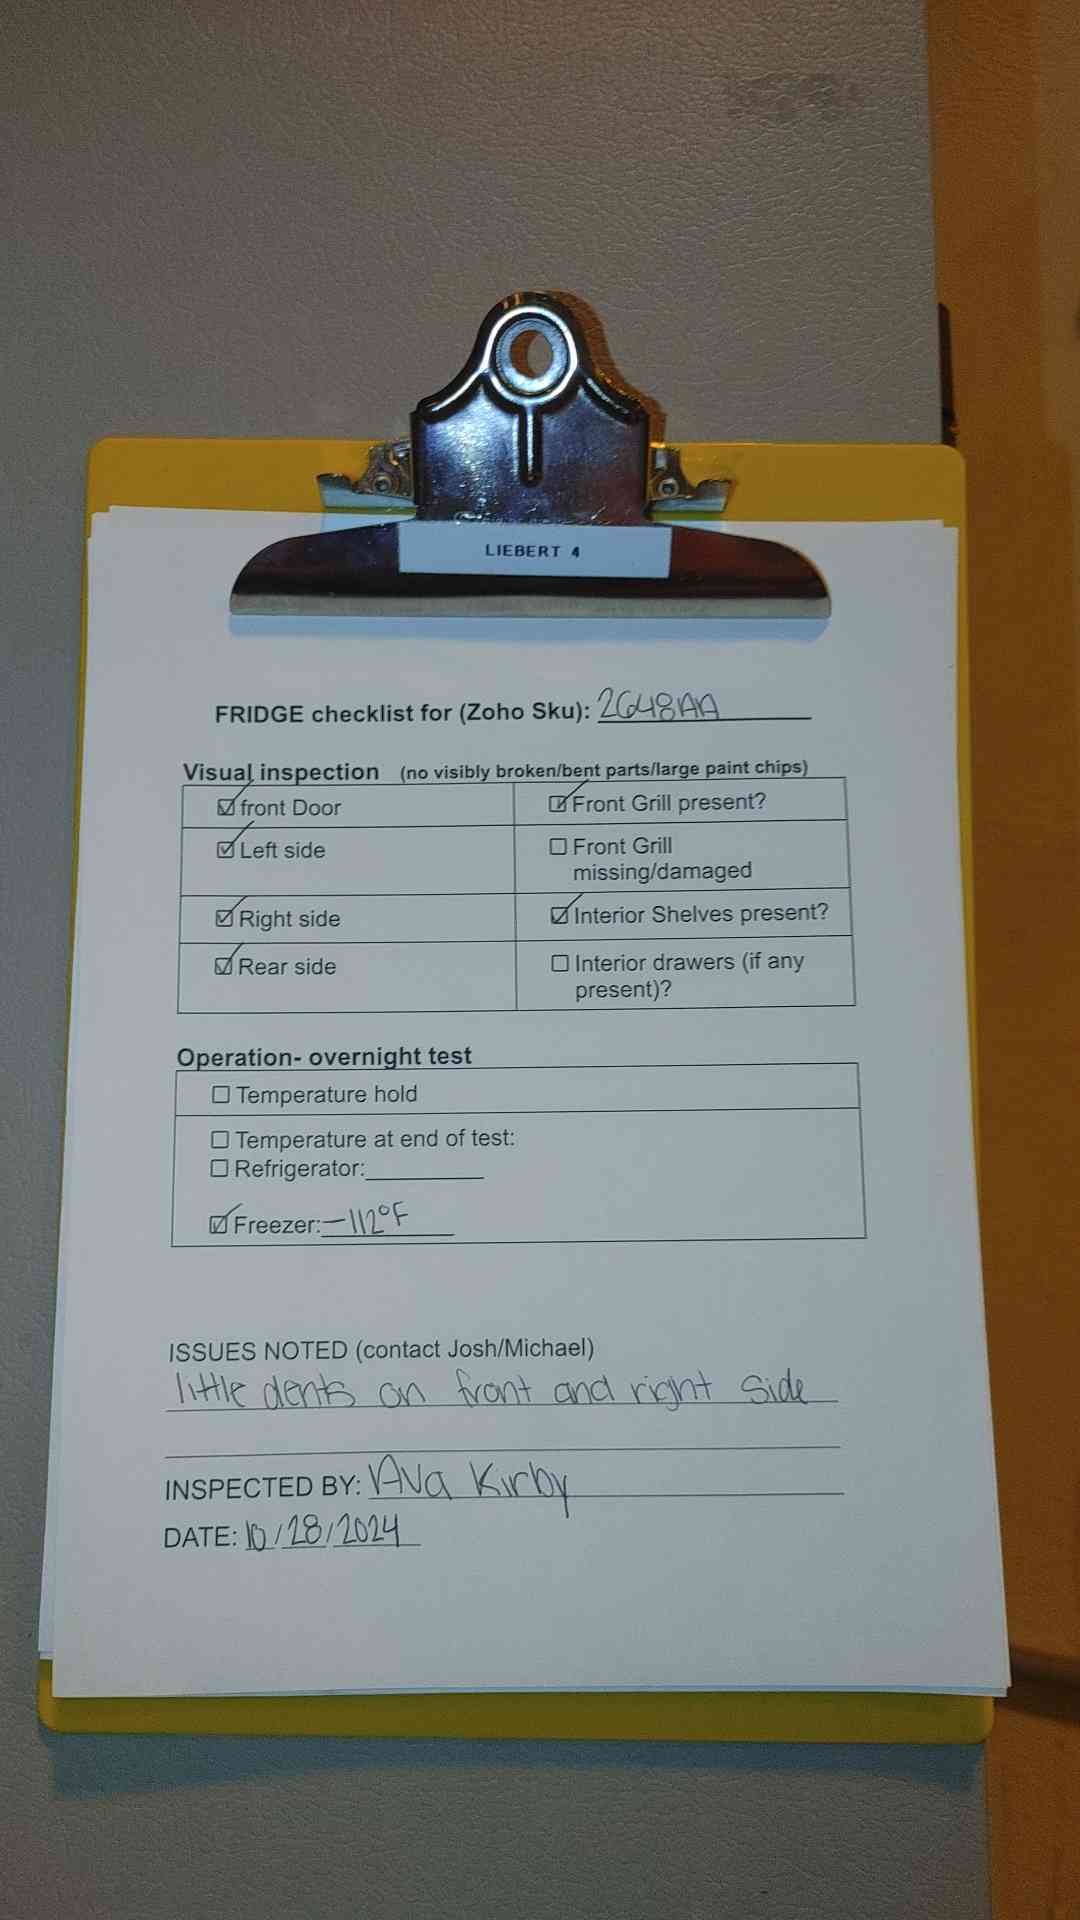 LIEBERT 4
FRIDGE checklist for (Zoho Sku): 2648AA
Visual inspection (no visibly broken/bent parts/large paint chips)
☑ front Door
☑ Front Grill present?
☑ Left side
☐ Front Grill
missing/damaged
☑ Right side
☑ Interior Shelves present?
☑ Rear side
☐ Interior drawers (if any
present)?
Operation- overnight test
☐ Temperature hold
☐ Temperature at end of test:
☐ Refrigerator:
☑ Freezer: -112°F
ISSUES NOTED (contact Josh/Michael)
little dents on front and right side
INSPECTED BY: Ava Kirby
DATE: 10/28/2024